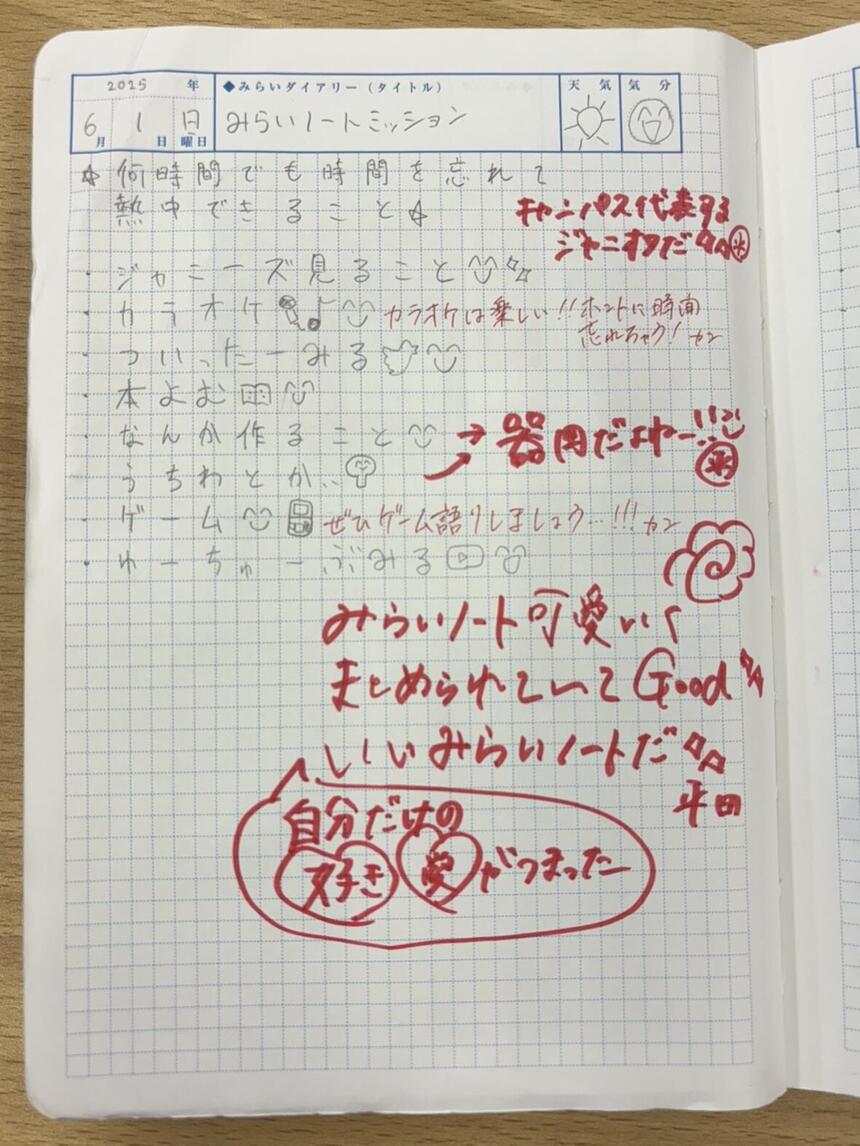 2025 年 ◆みらいダイアリー（タイトル） 天 気 気 分
6月 1日 日曜日 みらいノートミッション
☆ 何時間でも時間を忘れて
熱中できること☆
キャンパス代表する
ジャニオタだ
・ジャニーズ見ること
・カラオケ
カラオケは楽しい!!ホントに時間
忘れちゃう! カン
・ついったーみる
・本よむ
・なんか作ること
うちわとか..
→ 器用だよねー!!
・ゲーム
ぜひゲーム語りしましょう…!!! カン
・ゆーちゅーぶみる
みらいノート可愛いく
まとめられていて Good
いいみらいノートだ
平田
自分だけの
好き 愛 がつまった